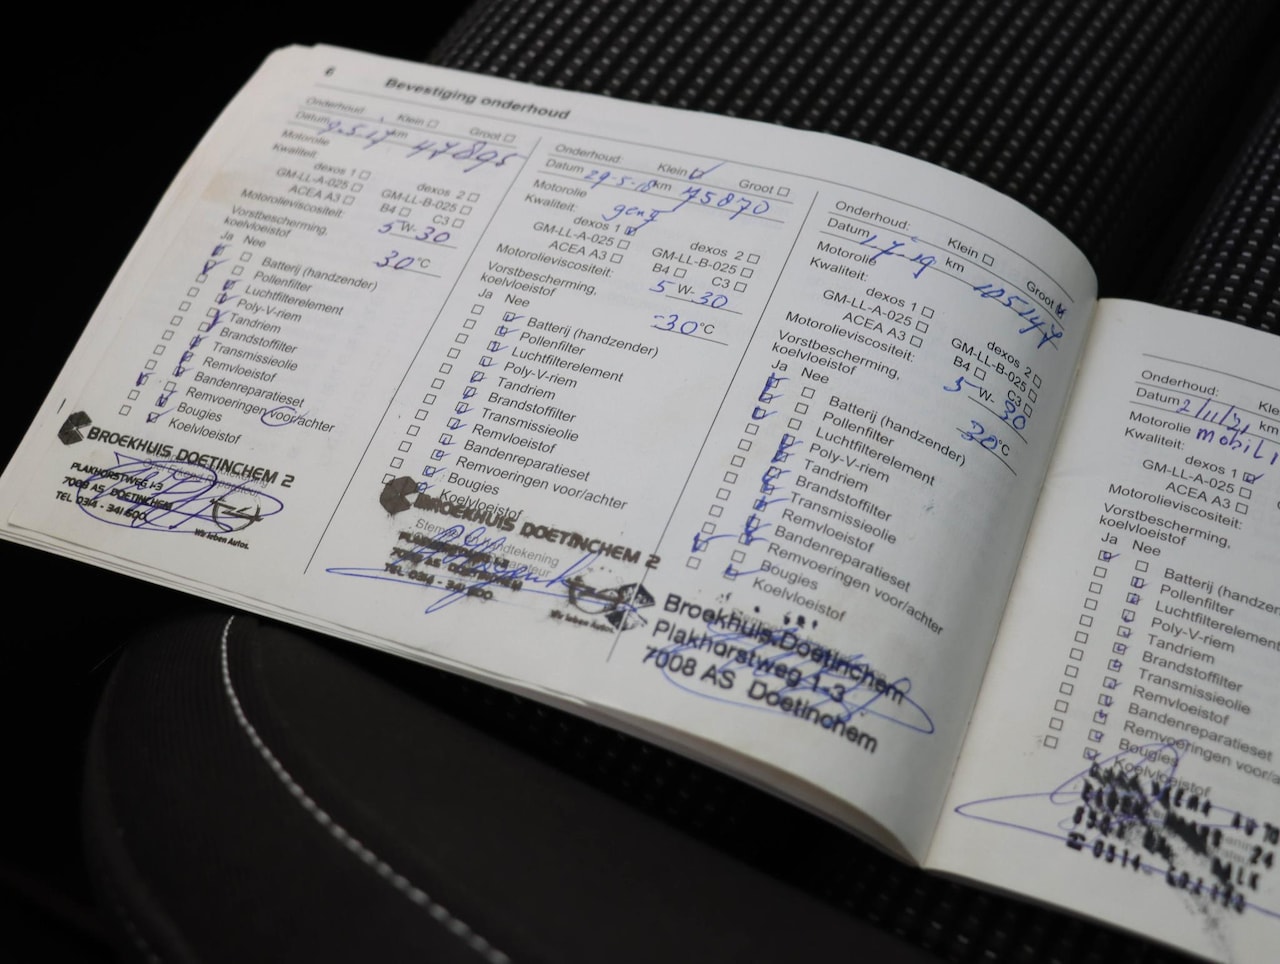 6
Bevestiging onderhoud
Onderhoud: Klein Groot
Datum 9-5-17 km 47895
Motorolie
Kwaliteit:
dexos 1 dexos 2
GM-LL-A-025 GM-LL-B-025
ACEA A3 B4 C3
Motorolieviscositeit: 5 W-30
Vorstbescherming,
koelvloeistof 30 °C
Ja Nee
Batterij (handzender)
Pollenfilter
Luchtfilterelement
Poly-V-riem
Tandriem
Brandstoffilter
Transmissieolie
Remvloeistof
Bandenreparatieset
Remvoeringen voor/achter
Bougies
Koelvloeistof
BROEKHUIS DOETINCHEM 2
PLAKHORSTWEG 1-3
7008 AS DOETINCHEM
TEL 0314 - 341600
Wir leben Autos.
Onderhoud: Klein Groot
Datum 29-5-18 km 75870
Motorolie
Kwaliteit:
dexos 1 dexos 2
GM-LL-A-025 GM-LL-B-025
ACEA A3 B4 C3
Motorolieviscositeit: 5 W-30
Vorstbescherming,
koelvloeistof -30 °C
Ja Nee
Batterij (handzender)
Pollenfilter
Luchtfilterelement
Poly-V-riem
Tandriem
Brandstoffilter
Transmissieolie
Remvloeistof
Bandenreparatieset
Remvoeringen voor/achter
Bougies
Koelvloeistof
BROEKHUIS DOETINCHEM 2
PLAKHORSTWEG 1-3
7008 AS DOETINCHEM
TEL 0314 - 341600
Wir leben Autos.
Onderhoud: Klein Groot
Datum 1-7-19 km 105147
Motorolie
Kwaliteit:
dexos 1 dexos 2
GM-LL-A-025 GM-LL-B-025
ACEA A3 B4 C3
Motorolieviscositeit: 5 W-30
Vorstbescherming,
koelvloeistof 30 °C
Ja Nee
Batterij (handzender)
Pollenfilter
Luchtfilterelement
Poly-V-riem
Tandriem
Brandstoffilter
Transmissieolie
Remvloeistof
Bandenreparatieset
Remvoeringen voor/achter
Bougies
Koelvloeistof
Broekhuis Doetinchem
Plakhorstweg 1-3
7008 AS Doetinchem
Onderhoud: Kle
Datum 2/11/21 km
Motorolie mobil 1
Kwaliteit:
dexos 1
GM-LL-A-025
ACEA A3
Motorolieviscositeit:
Vorstbescherming,
koelvloeistof
Ja Nee
Batterij (handzen
Pollenfilter
Luchtfilterelement
Poly-V-riem
Tandriem
Brandstoffilter
Transmissieolie
Remvloeistof
Bandenreparatieset
Remvoeringen voor/a
Bougies
Koelvloeistof